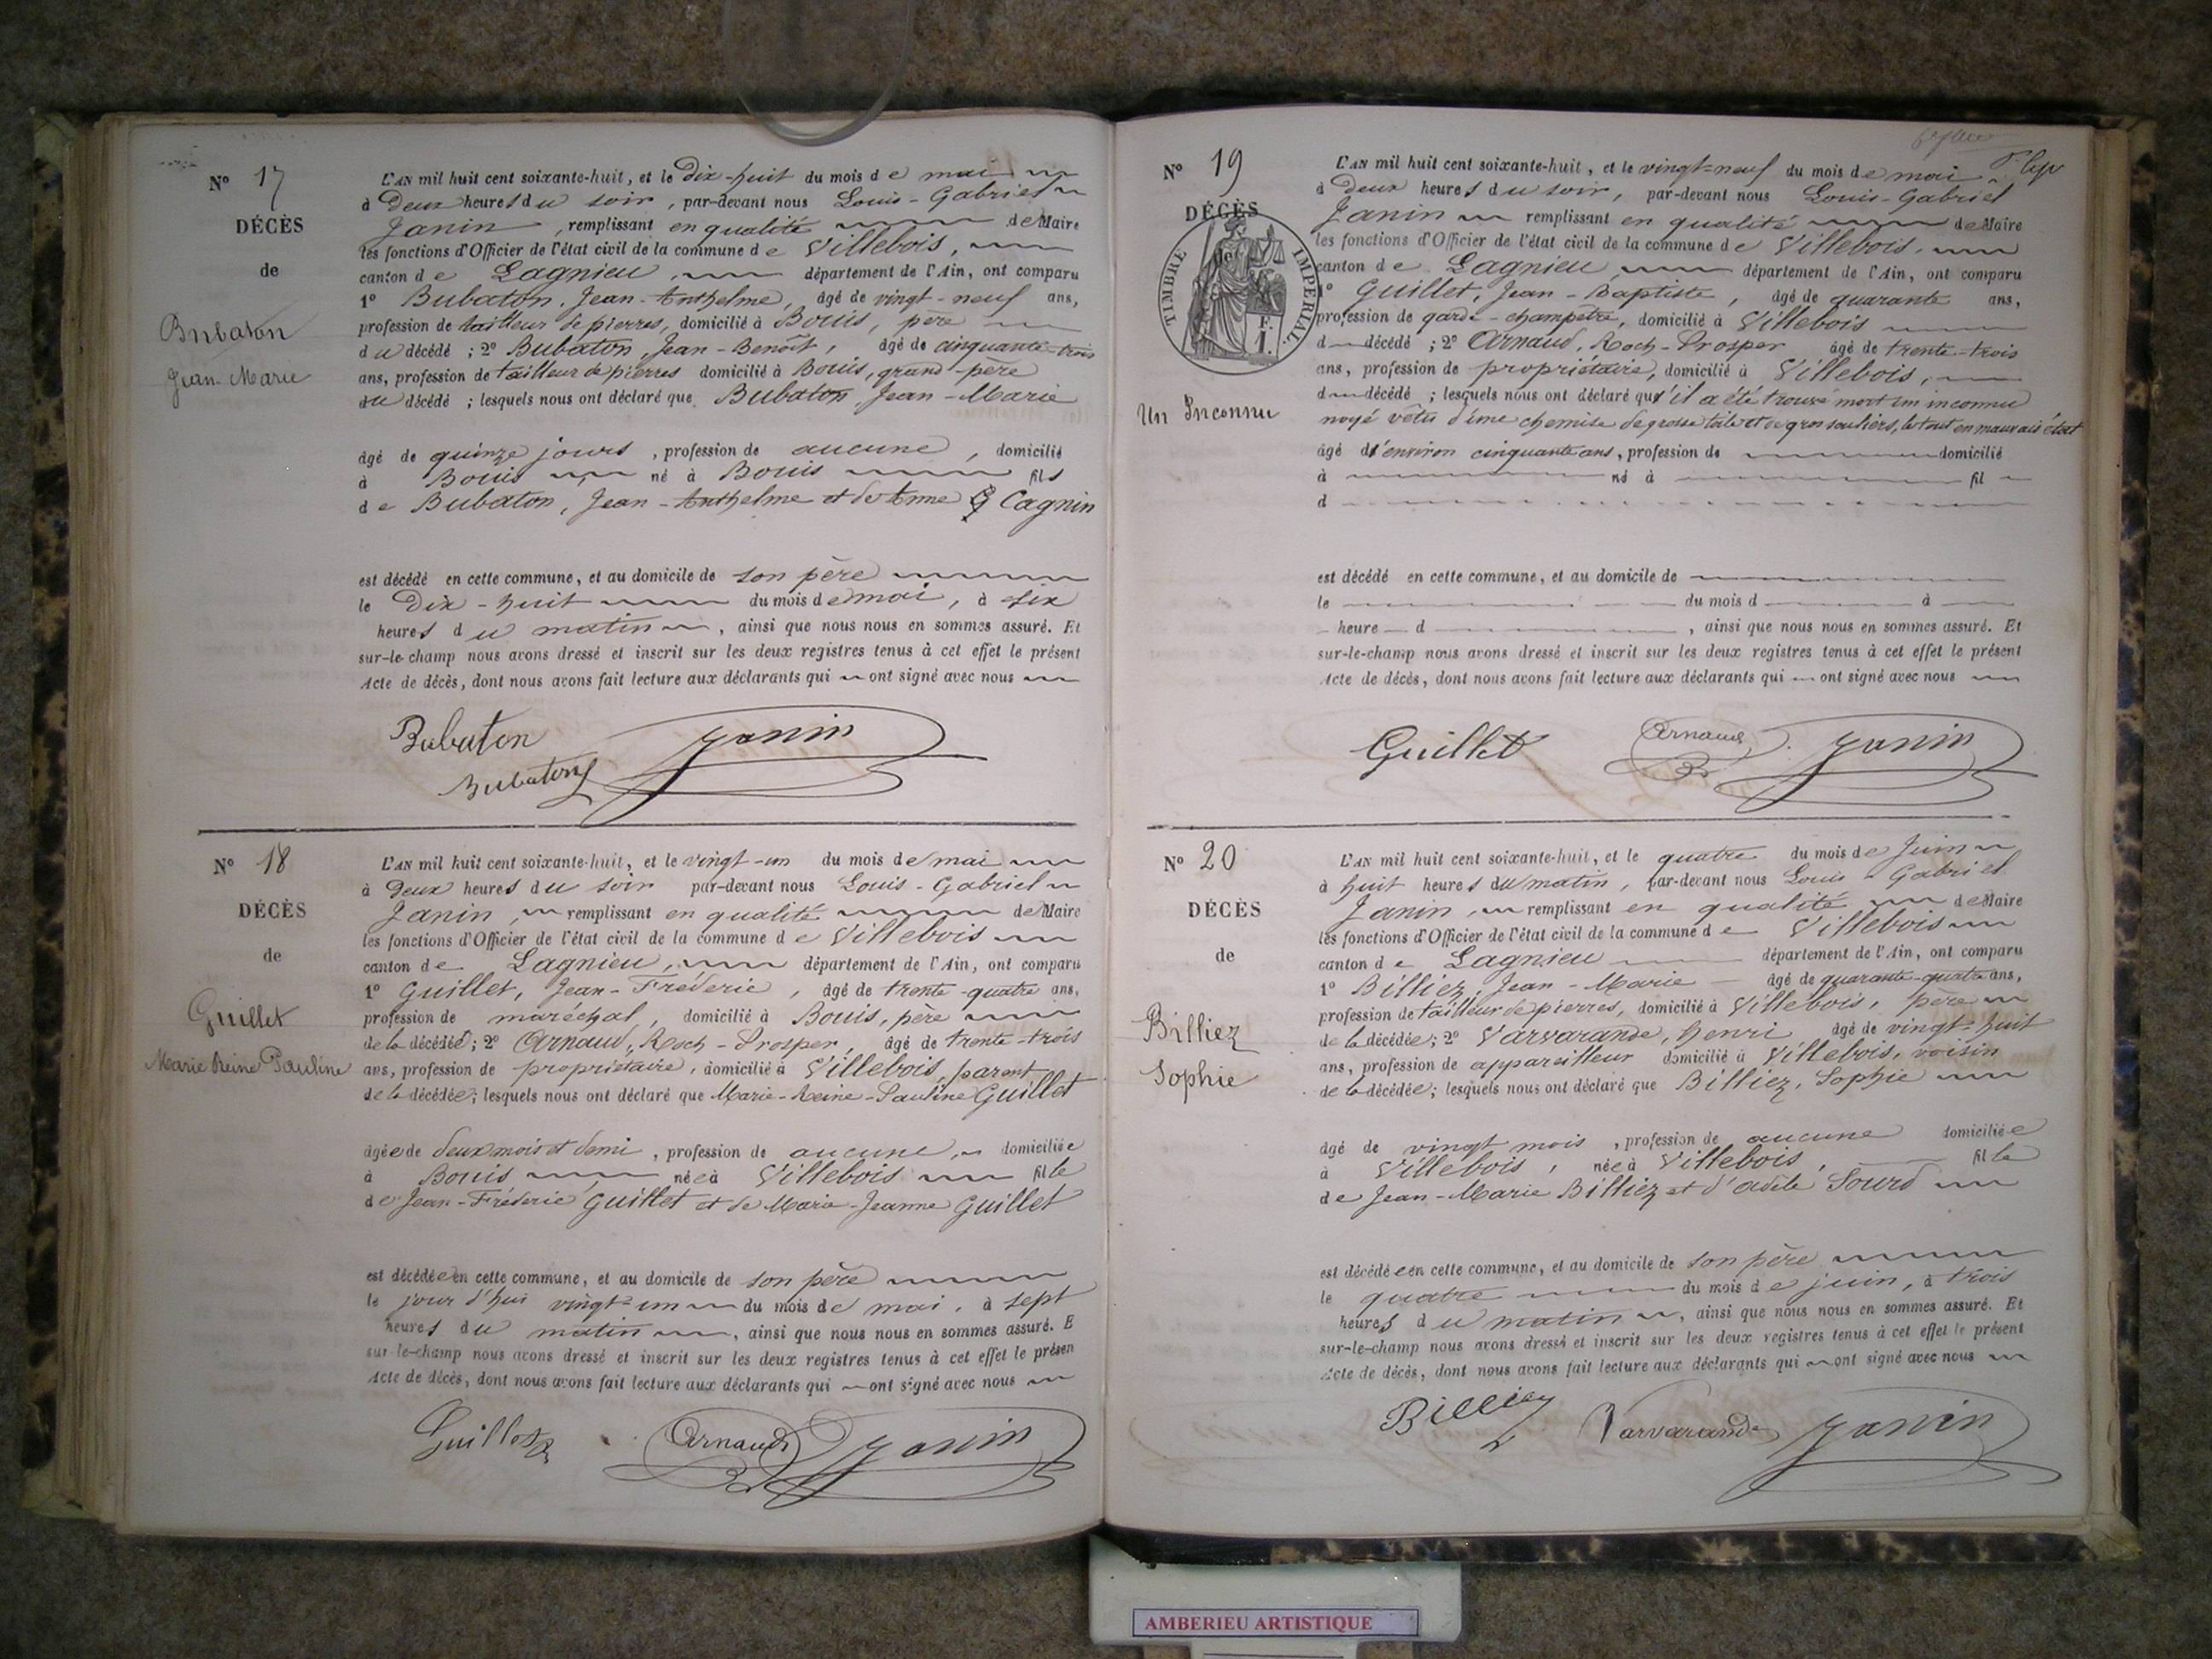 N° 17
DÉCÈS
de
Bubaton
Jean-Marie
L'AN mil huit cent soixante-huit, et le Dix-huit du mois de mai
à Deux heures du soir, par-devant nous Louis-Gabriel
Janin, remplissant en qualité de Maire
les fonctions d'Officier de l'état civil de la commune de Villebois,
canton de Lagnieu, département de l'Ain, ont comparu
1° Bubaton, Jean-Anthelme, âgé de vingt-neuf ans,
profession de tailleur de pierres, domicilié à Bouis, père
du décédé ; 2° Bubaton, Jean-Benoît, âgé de cinquante-trois
ans, profession de tailleur de pierres domicilié à Bouis, grand-père
du décédé ; lesquels nous ont déclaré que Bubaton, Jean-Marie
âgé de quinze jours, profession de aucune, domicilié
à Bouis né à Bouis fils
de Bubaton, Jean-Anthelme et de Anne Cagnin
est décédé en cette commune, et au domicile de son père
le Dix-huit du mois de mai, à six
heures du matin, ainsi que nous nous en sommes assuré. Et
sur-le-champ nous avons dressé et inscrit sur les deux registres tenus à cet effet le présent
Acte de décès, dont nous avons fait lecture aux déclarants qui ont signé avec nous
Bubaton Janin
Bubaton
N° 18
DÉCÈS
de
Guillet
Marie Reine Pauline
L'AN mil huit cent soixante-huit, et le vingt-un du mois de mai
à Deux heures du soir par-devant nous Louis-Gabriel
Janin, remplissant en qualité de Maire
les fonctions d'Officier de l'état civil de la commune de Villebois
canton de Lagnieu, département de l'Ain, ont comparu
1° Guillet, Jean-Fréderic, âgé de trente-quatre ans,
profession de maréchal, domicilié à Bouis, père
de la décédée ; 2° Arnaud, Roch-Prosper, âgé de trente-trois
ans, profession de propriétaire, domicilié à Villebois, parent
de la décédée ; lesquels nous ont déclaré que Marie-Reine-Pauline Guillet
âgée de deux mois et demi, profession de aucune, domiciliée
à Bouis née à Villebois fille
de Jean-Fréderic Guillet et de Marie-Jeanne Guillet
est décédée en cette commune, et au domicile de son père
le jour d'hui vingt-un du mois de mai, à sept
heures du matin, ainsi que nous nous en sommes assuré. E
sur-le-champ nous avons dressé et inscrit sur les deux registres tenus à cet effet le présen
Acte de décès, dont nous avons fait lecture aux déclarants qui ont signé avec nous
Arnaud Janin
N° 19
DÉCÈS
de
TIMBRE IMPERIAL
F.
1.
Un Inconnu
L'AN mil huit cent soixante-huit, et le vingt-neuf du mois de mai
à Deux heures du soir, par-devant nous Louis-Gabriel
Janin remplissant en qualité de Maire
les fonctions d'Officier de l'état civil de la commune de Villebois,
canton de Lagnieu département de l'Ain, ont comparu
1° Guillet, Jean-Baptiste, âgé de quarante ans,
profession de garde-champêtre, domicilié à Villebois
d décédé ; 2° Arnaud, Roch-Prosper âgé de trente-trois
ans, profession de propriétaire, domicilié à Villebois,
d décédé ; lesquels nous ont déclaré qu'il a été trouvé mort un inconnu
noyé vêtu d'une chemise de grosse toile et de gros souliers, le tout en mauvais état
âgé d'environ cinquante ans, profession de domicilié
à né à fil
d
est décédé en cette commune, et au domicile de
le du mois d à
heure d , ainsi que nous nous en sommes assuré. Et
sur-le-champ nous avons dressé et inscrit sur les deux registres tenus à cet effet le présent
Acte de décès, dont nous avons fait lecture aux déclarants qui ont signé avec nous
Guillet Arnaud Janin
N° 20
DÉCÈS
de
Billiez
Sophie
L'AN mil huit cent soixante-huit, et le quatre du mois de Juin
à huit heures du matin, par-devant nous Louis-Gabriel
Janin, remplissant en qualité de Maire
les fonctions d'Officier de l'état civil de la commune de Villebois
canton de Lagnieu département de l'Ain, ont comparu
1° Billiez, Jean-Marie âgé de quarante-quatre ans,
profession de tailleur de pierres, domicilié à Villebois, père
de la décédée ; 2° Varvarande, henri âgé de vingt-huit
ans, profession de appareilleur domicilié à Villebois, voisin
de la décédée ; lesquels nous ont déclaré que Billiez, Sophie
âgé de vingt mois, profession de aucune domiciliée
à Villebois, née à Villebois, fille
de Jean-Marie Billiez et d'adèle Sourd
est décédée en cette commune, et au domicile de son père
le quatre du mois de juin, à trois
heures du matin, ainsi que nous nous en sommes assuré. Et
sur-le-champ nous avons dressé et inscrit sur les deux registres tenus à cet effet le présent
Acte de décès, dont nous avons fait lecture aux déclarants qui ont signé avec nous
Billiez Varvarande Janin
AMBERIEU ARTISTIQUE